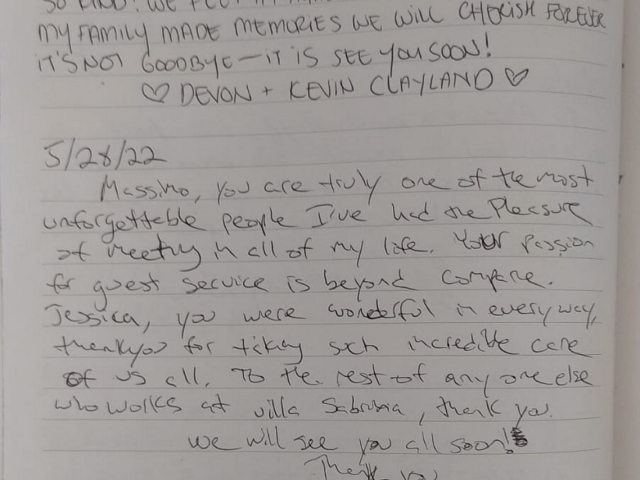 SO KIND! WE
MY FAMILY MADE MEMORIES WE WILL CHERISH FOREVER
IT'S NOT GOODBYE - IT IS SEE YOU SOON!
♡ DEVON + KEVIN CLAYLAND ♡
5/28/22
Massimo, you are truly one of the most
unforgettable people I've had the Pleasure
of meeting in all of my life. Your passion
for guest service is beyond compare.
Jessica, you were wonderful in every way,
thankyou for taking such incredible care
of us all. To the rest of any one else
who works at villa Sabrina, thank you.
we will see you all soon!
Thank you